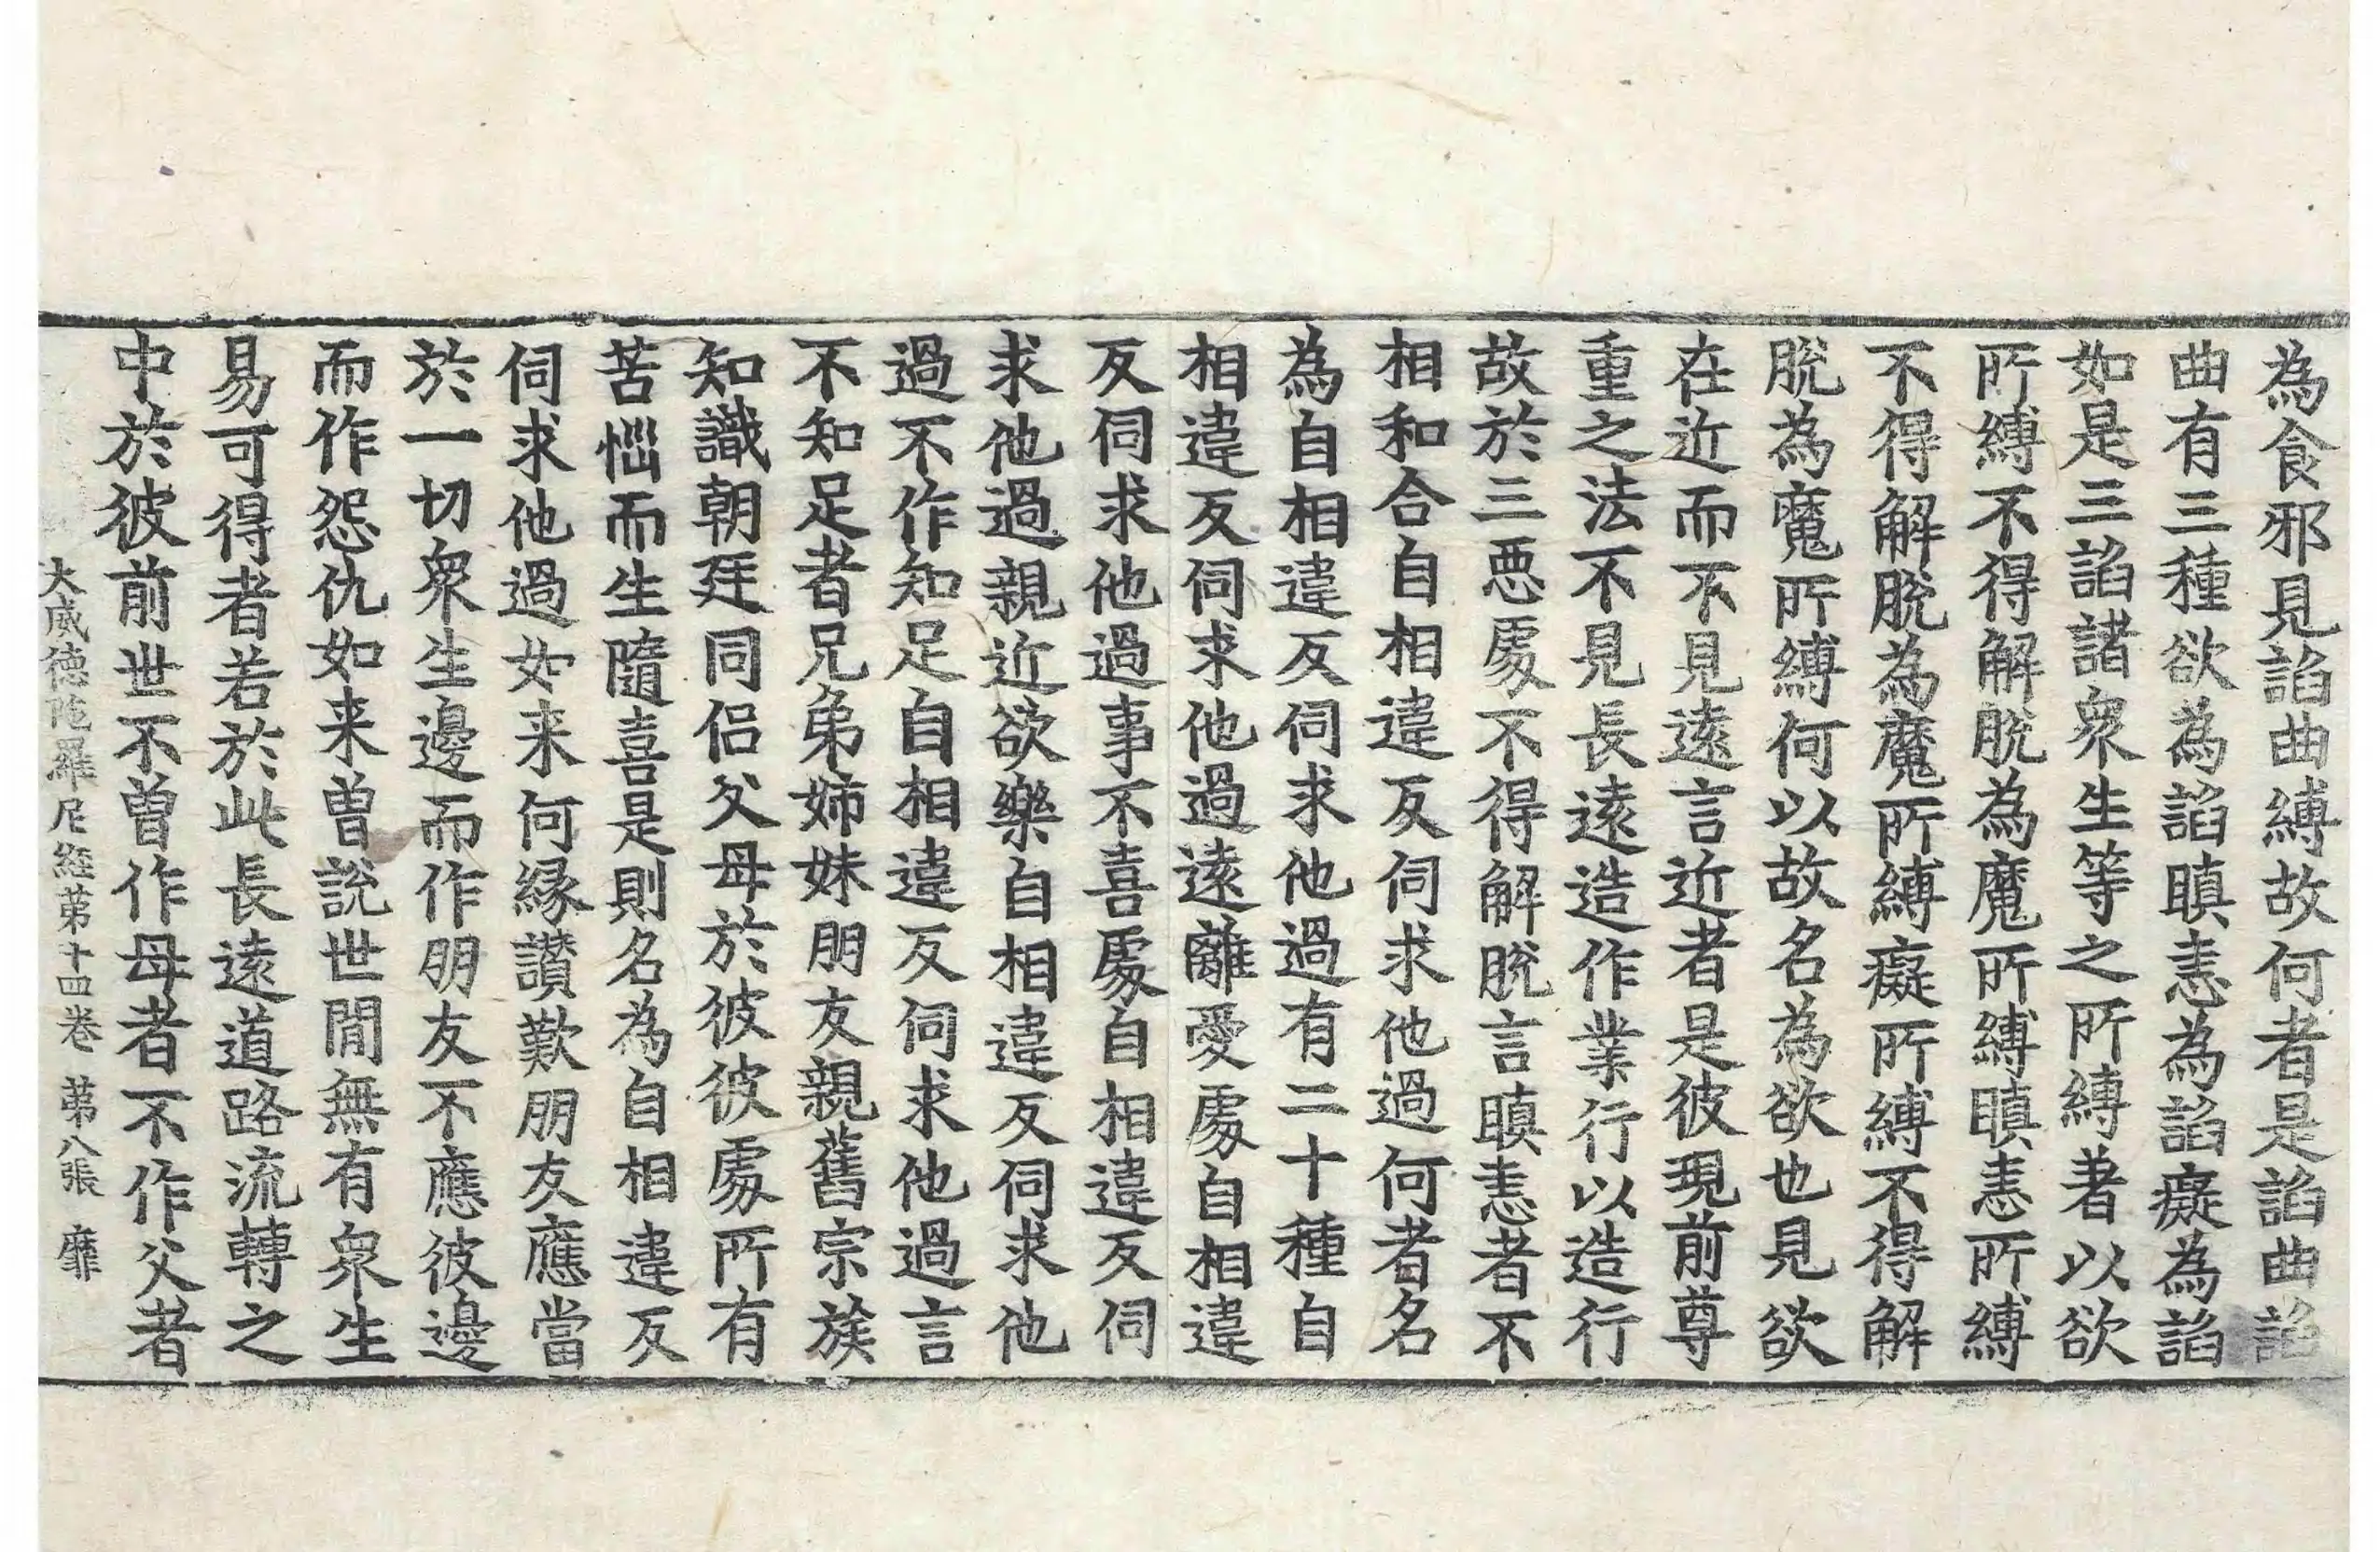 為食邪見諂曲縛故何者是諂曲諂
曲有三種欲為諂瞋恚為諂癡為諂
如是三諂諸衆生等之所縛著以欲
所縛不得解脫為魔所縛瞋恚所縛
不得解脫為魔所縛癡所縛不得解
脫為魔所縛何以故名為欲也見欲
在近而不見遠言近者是彼現前尊
重之法不見長遠造作業行以造行
故於三悪處不得解脫言瞋恚者不
相和合自相違反伺求他過何者名
為自相違反伺求他過有二十種自
相違反伺求他過遠離愛處自相違
反伺求他過事不喜處自相違反伺
求他過親近欲樂自相違反伺求他
過不作知足自相違反伺求他過言
不知足者兄弟姉妹朋友親舊宗族
知識朝廷同侶父母於彼彼處所有
苦惱而生隨喜是則名為自相違反
伺求他過如来何緣讃歎朋友應當
於一切衆生邊而作朋友不應彼邊
而作怨仇如来曾說世間無有衆生
易可得者若於此長遠道路流轉之
中於彼前世不曾作母者不作父者
大威德陁羅尼経苐十四卷 苐八張 靡